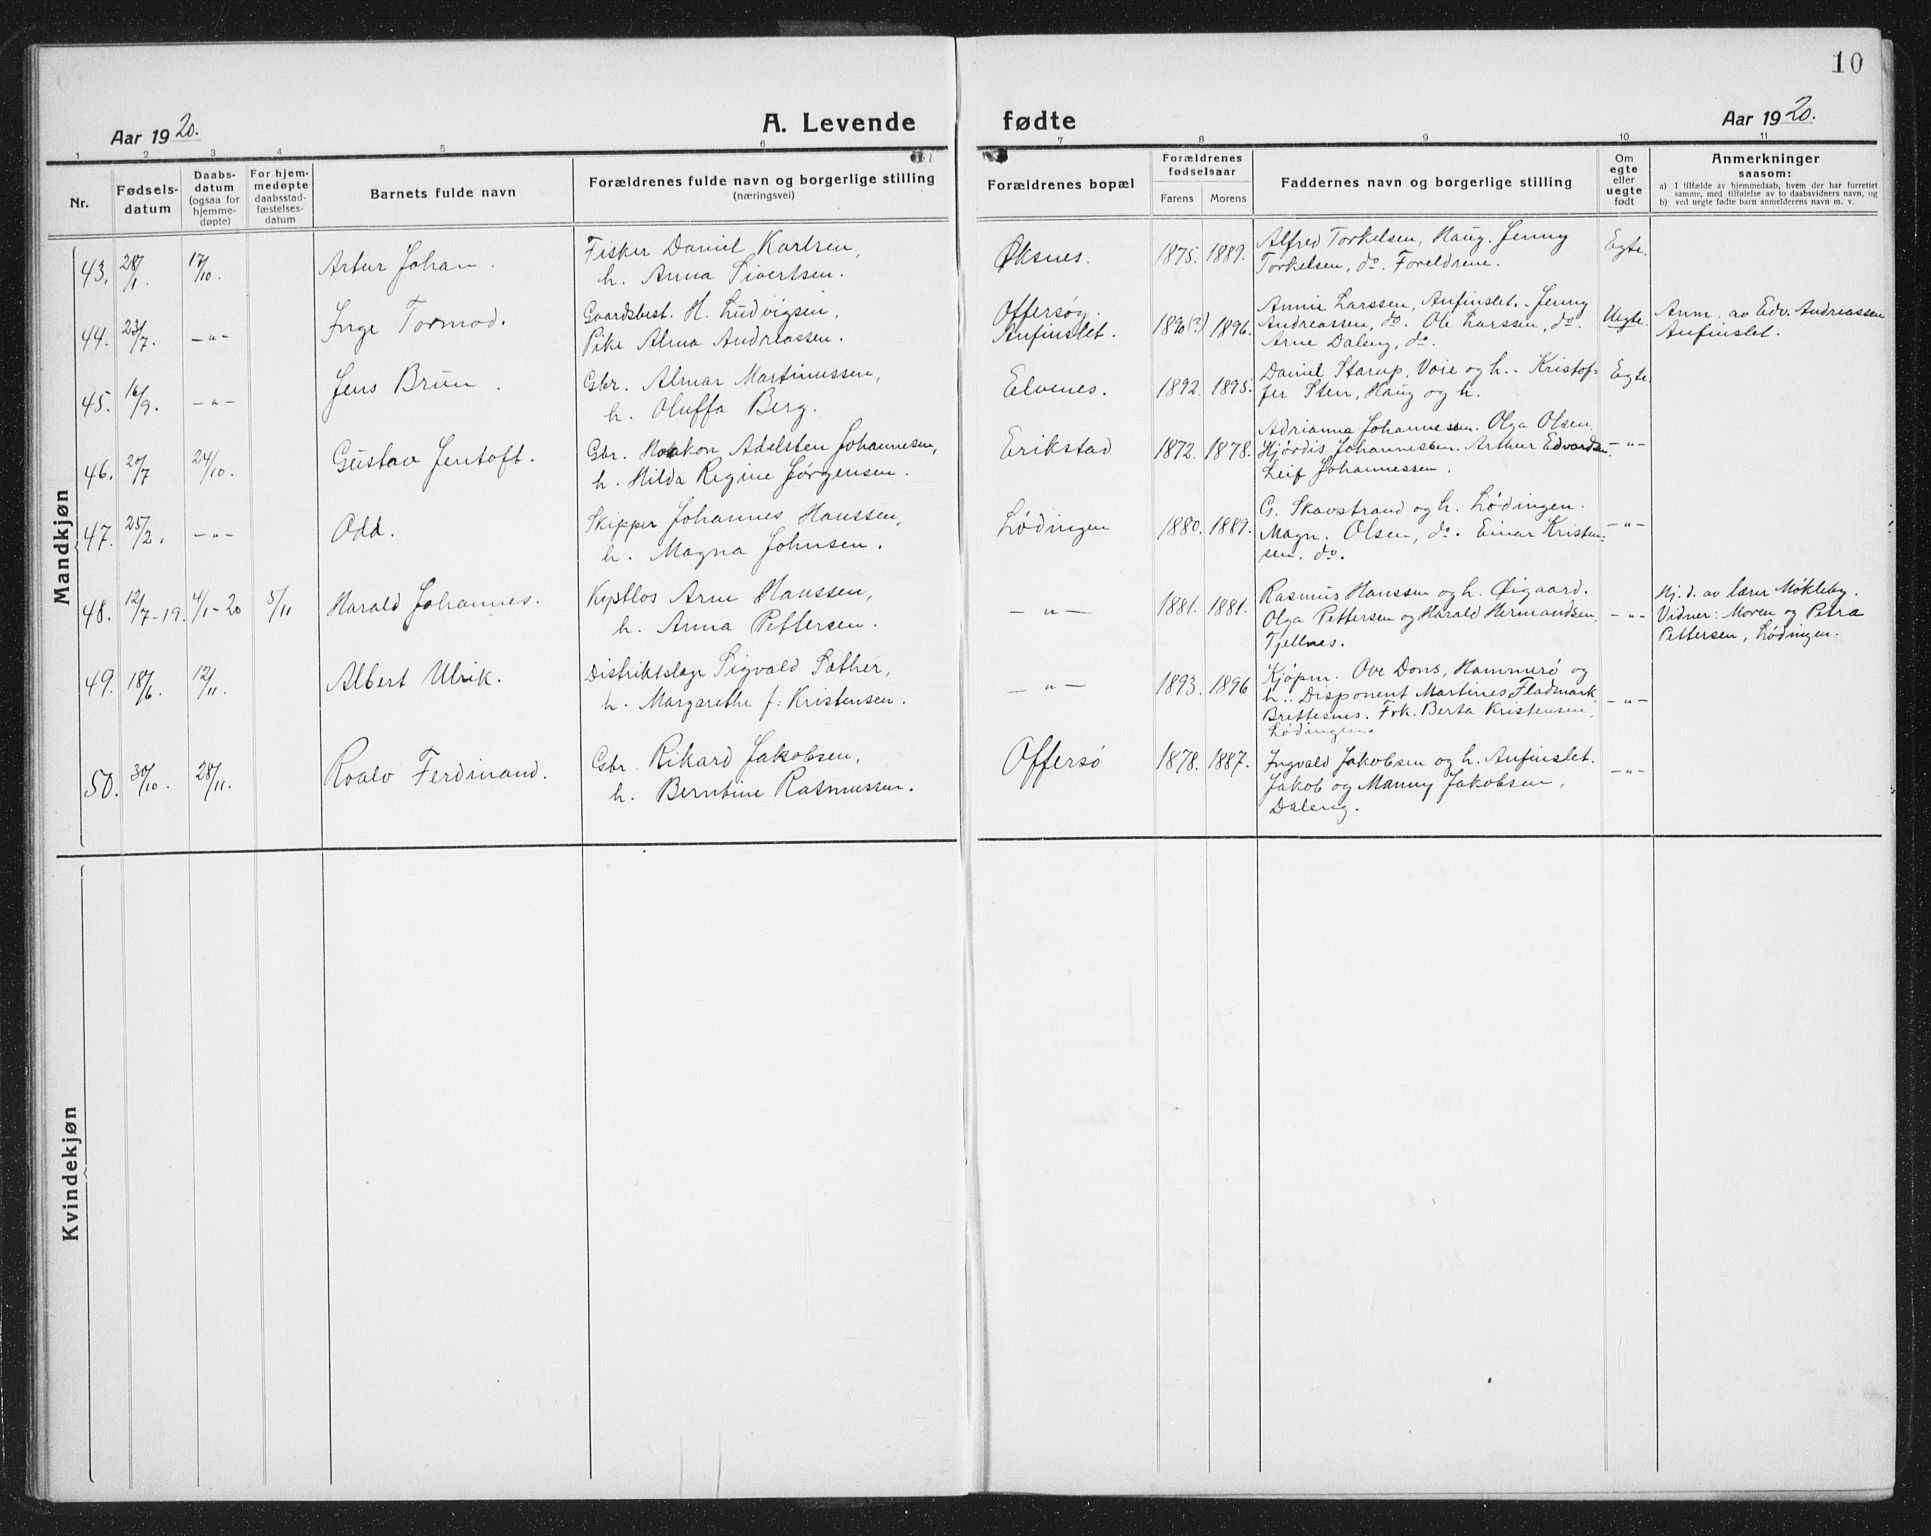 10
Aar 1920.
A. Levende fødte
Aar 1920.
1 2 3 4 5 6 7 8 9 10 11
Nr.
Fødselsdatum
Daabsdatum (ogsaa for hjemmedøpte)
For hjemmedøpte daabsstadfæstelsesdatum
Barnets fulde navn
Forældrenes fulde navn og borgerlige stilling (næringsvei)
Forældrenes bopæl
Forældrenes fødselsaar
Farens Morens
Faddernes navn og borgerlige stilling
Om egte eller uegte født
Anmerkninger saasom:
a) I tilfælde av hjemmedaab, hvem der har forrettet samme, med tilføielse av to daabsvidners navn, og
b) ved uegte fødte barn anmelderens navn m. v.
Mandkjøn
43. 28/1 17/10 Artur Johan.
Fisker Daniel Karlsen,
h. Anna Sivertsen.
Øksnes. 1875. 1889.
Alfred Torkelsen, Haug. Jenny
Torkelsen, do. Foreldrene.
Egte.
44. 23/7. —"— Inge Tormod.
Gaardsbest. H. Ludvigsen,
Pike Alma Andreassen.
Offersøy.
Anfinslet.
1890(?) 1896.
Annie Larssen, Anfinslet. Jenny
Andreassen, do. Ole Larssen, do.
Arne Daleng, do.
Uegte.
Anm. av Edv. Andreassen
Anfinslet.
45. 16/9. —"— Jens Brun.
Gbr. Almar Martinussen,
h. Oluffa Berg.
Elvenes. 1892. 1895.
Daniel Starup, Voie og h. Kristof-
fer Sten, Haug og h.
Egte
46. 20/7 24/10. Gustav Jentoft.
Gbr. Haakon Adelsten Johannesen,
h. Hilda Regine Jørgensen.
Erikstad 1872. 1878.
Adrianna Johannessen. Olga Olsen,
Hjørdis Johannessen. Arthur Edvardsen
Leif Johannessen.
—"—
47. 25/2. —"— Odd.
Skipper Johannes Hanssen,
h. Magna Johnsen.
Lødingen 1880. 1889.
G. Skavstrand og h. Lødingen.
Magn. Olsen, do. Einar Kristen-
sen, do.
—"—
48. 12/7-19. 4/1-20 5/11 Harald Johannes.
Arne Hanssen,
h. Anna Pettersen.
—"— 1881. 1881.
Rasmus Hanssen og h. Øigaard.
Olga Pettersen og Harald Hermandsen,
Tjellnes.
—"—
Hj. d. av lærer Møkleby.
Vidner: Moren og Petra
Pettersen, Lødingen.
49. 18/6. 12/11. Albert Ulrik.
Distriktslæge Sigvald Sather,
h. Margarethe f. Kristensen.
—"— 1893. 1896
Kjøpm. Ove Dons, Hammerø og
h. Disponent Martines Fladmark,
Brettesnes. Frk. Berta Kristensen,
Lødingen.
—"—
50. 30/10. 28/11. Roalv Ferdinand.
Gbr. Rikard Jakobsen,
h. Berntine Rasmussen.
Offersø 1878. 1887.
Ingvald Jakobsen og h. Anfinslet.
Jakob og Manny Jakobsen,
Daleng.
—"—
Kvindekjøn